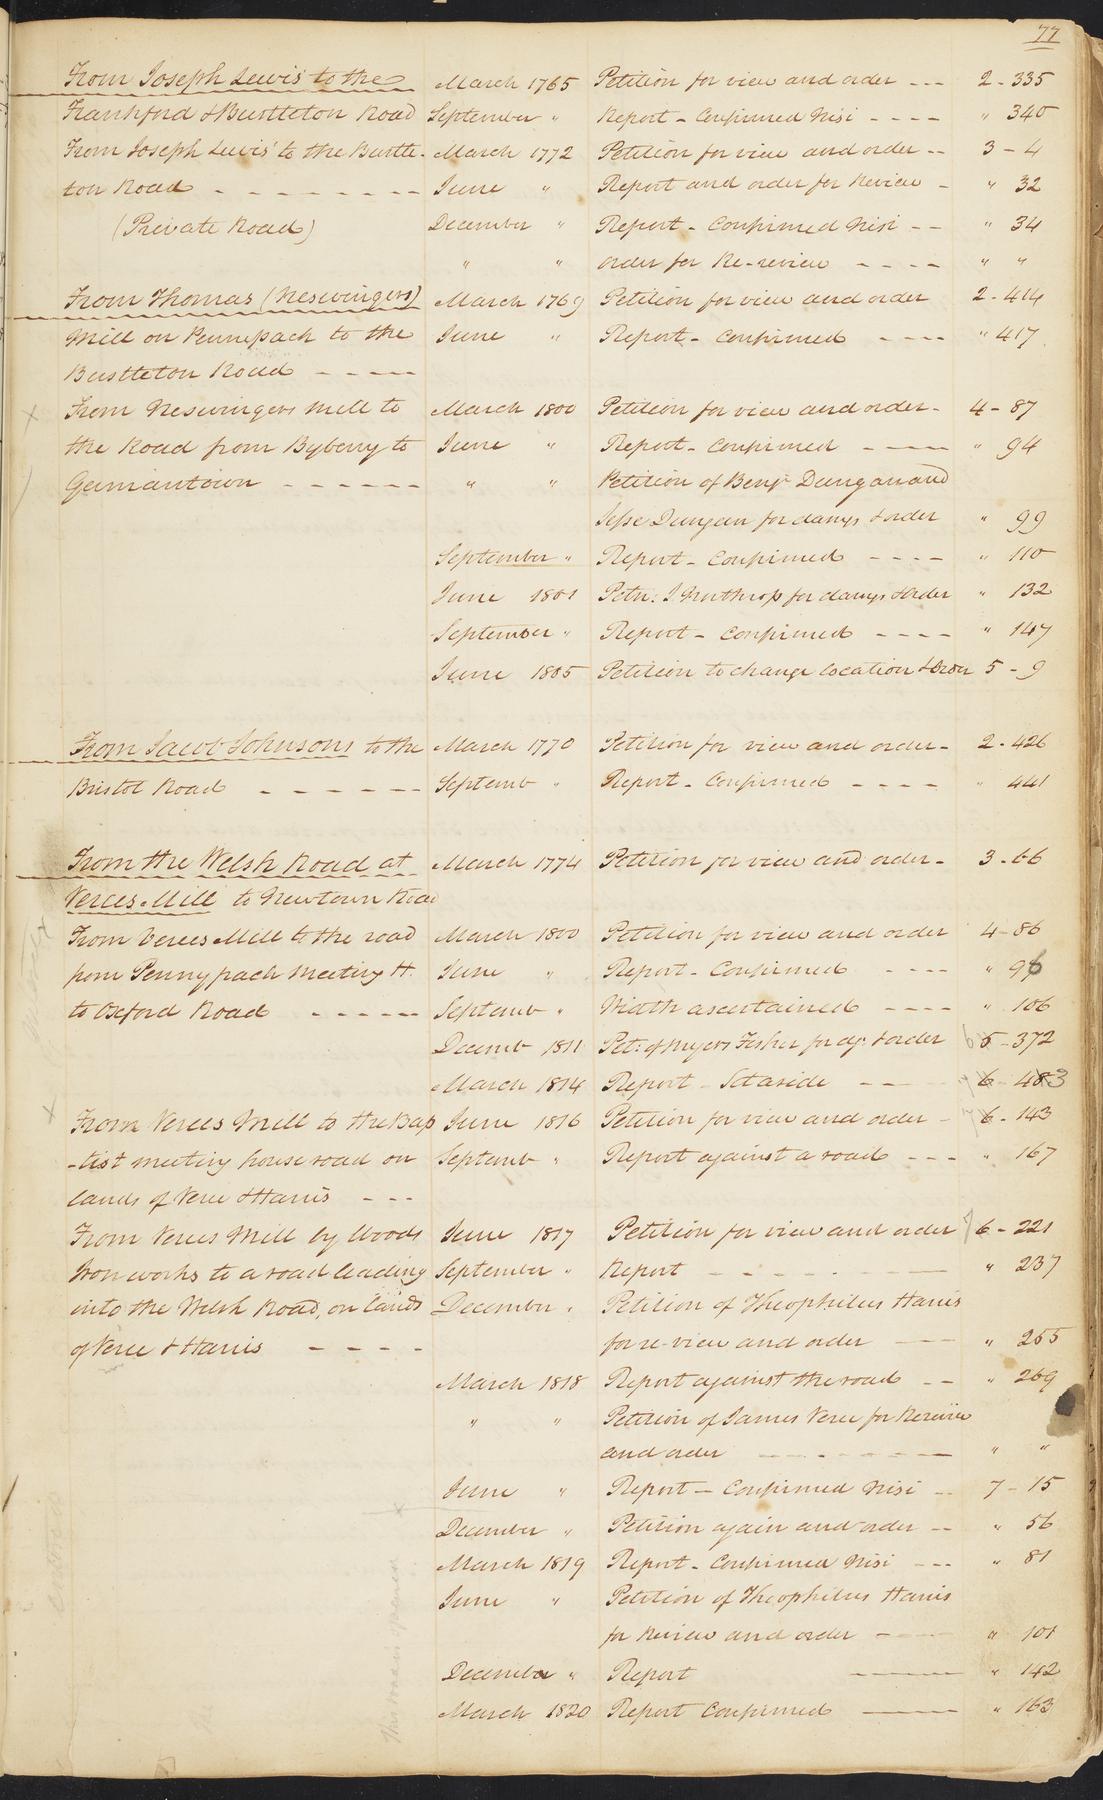 77
From Joseph Lewis' to the March 1765 Petition for view and order --- 2-335
Frankford & Bustleton Road September " Report - Confirmed Nisi ---- " 340
From Joseph Lewis' to the Bustle- March 1772 Petition for view and order -- 3-4
ton Road -------- June " Report and order for Review - " 32
(Private Road) December " Report - Confirmed Nisi -- " 34
" " order for Re-review ---- " "
From Thomas (Neswingers) March 1769 Petition for view and order 2-414
Mill on Pennepack to the June " Report - Confirmed ---- " 417
Bustleton Road -----
From Neswingers Mill to March 1800 Petition for view and order - 4-87
the Road from Byberry to June " Report - Confirmed ---- " 94
Germantown ------ " " Petition of Benj. Dungan and
Jesse Dungan for damgs & order " 99
September " Report - Confirmed ---- " 110
June 1801 Petn: J. Northrop for damgs & order " 132
September " Report - Confirmed ---- " 147
June 1805 Petition to change location & order 5-9
From Jacob Johnsons to the March 1770 Petition for view and order - 2-426
Bristol Road ------ Septemb " Report - Confirmed ---- " 441
From the Welsh Road at March 1774 Petition for view and order - 3-66
Verees Mill to Newtown Road
From Verees Mill to the road March 1800 Petition for view and order 4-86
from Pennypack Meeting H. June " Report - Confirmed ---- " 96
to Oxford Road ----- Septemb " Width ascertained ---- " 106
Decemb 1811 Pet: of Myers Fisher for & order 5-372
March 1814 Report - Set aside ---- 6-483
From Verees Mill to the Bap June 1816 Petition for view and order - 6-143
-tist meeting house road on Septemb " Report against a road --- " 167
lands of Veree & Harris ---
From Verees Mill by Woods June 1817 Petition for view and order 6-221
Iron works to a road leading September " Report ------ " 237
into the Welsh Road, on lands December " Petition of Theophilus Harris
of Veree & Harris ---- for re-view and order --- " 255
March 1818 Report against the road -- " 269
" " Petition of James Veree for Review
and order ------ " "
June " Report - Confirmed Nisi -- 7-15
December " Petition again and order -- " 56
March 1819 Report - Confirmed Nisi --- " 81
June " Petition of Theophilus Harris
for Review and order --- " 101
December " Report --- " 142
March 1820 Report Confirmed --- " 163